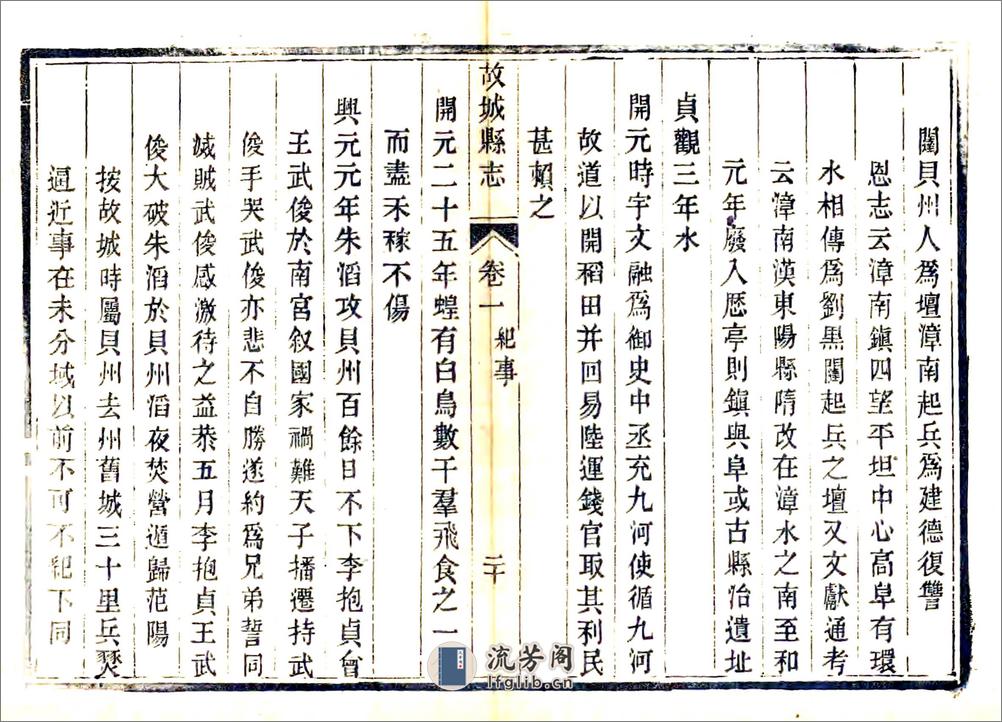 闥貝州人為壇漳南起兵為建德復讐
恩志云漳南鎮四望平坦中心高阜有環
水相傳為劉黑闥起兵之壇又文獻通考
云漳南漢東陽縣隋改在漳水之南至和
元年廢入歷亭則鎮與阜或古縣治遺址
貞觀三年水
開元時宇文融為御史中丞充九河使循九河
故道以開稻田并回易陸運錢官取其利民
甚賴之
故城縣志 卷一 紀事 二十
開元二十五年蝗有白鳥數千羣飛食之一
而盡禾稼不傷
興元元年朱滔攻貝州百餘日不下李抱貞會
王武俊於南宮叙國家禍難天子播遷持武
俊手哭武俊亦悲不自勝遂約為兄弟誓同
滅賊武俊感激待之益恭五月李抱貞王武
俊大破朱滔於貝州滔夜焚營遁歸范陽
按故城時屬貝州去州舊城三十里兵燹
逼近事在未分域以前不可不紀下同
流芳阁
lfglib.cn